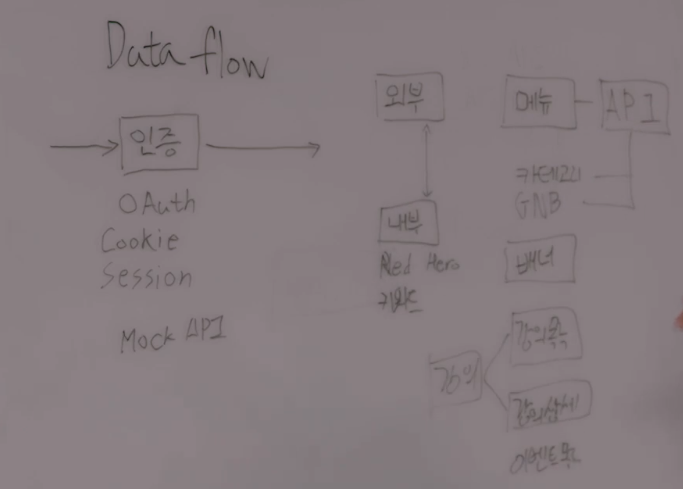 Data flow
인증
OAuth
Cookie
Session
Mock API
외부
내부
Red Hero
키워드
메뉴
API
카테고리
GNB
배너
강의
강의목록
강의상세
이벤트목록